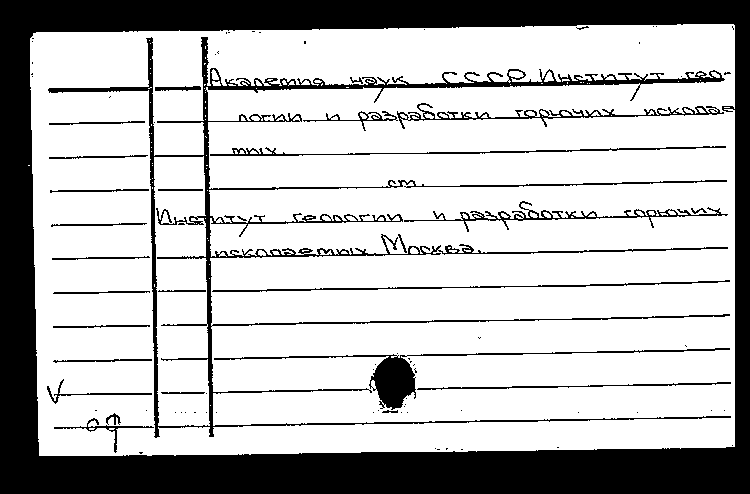 Академия наук СССР. Институт гео-
логии и разработки горючих ископае
мых.
см.
Институт геологии и разработки горючих
ископаемых. Москва.
V
оф